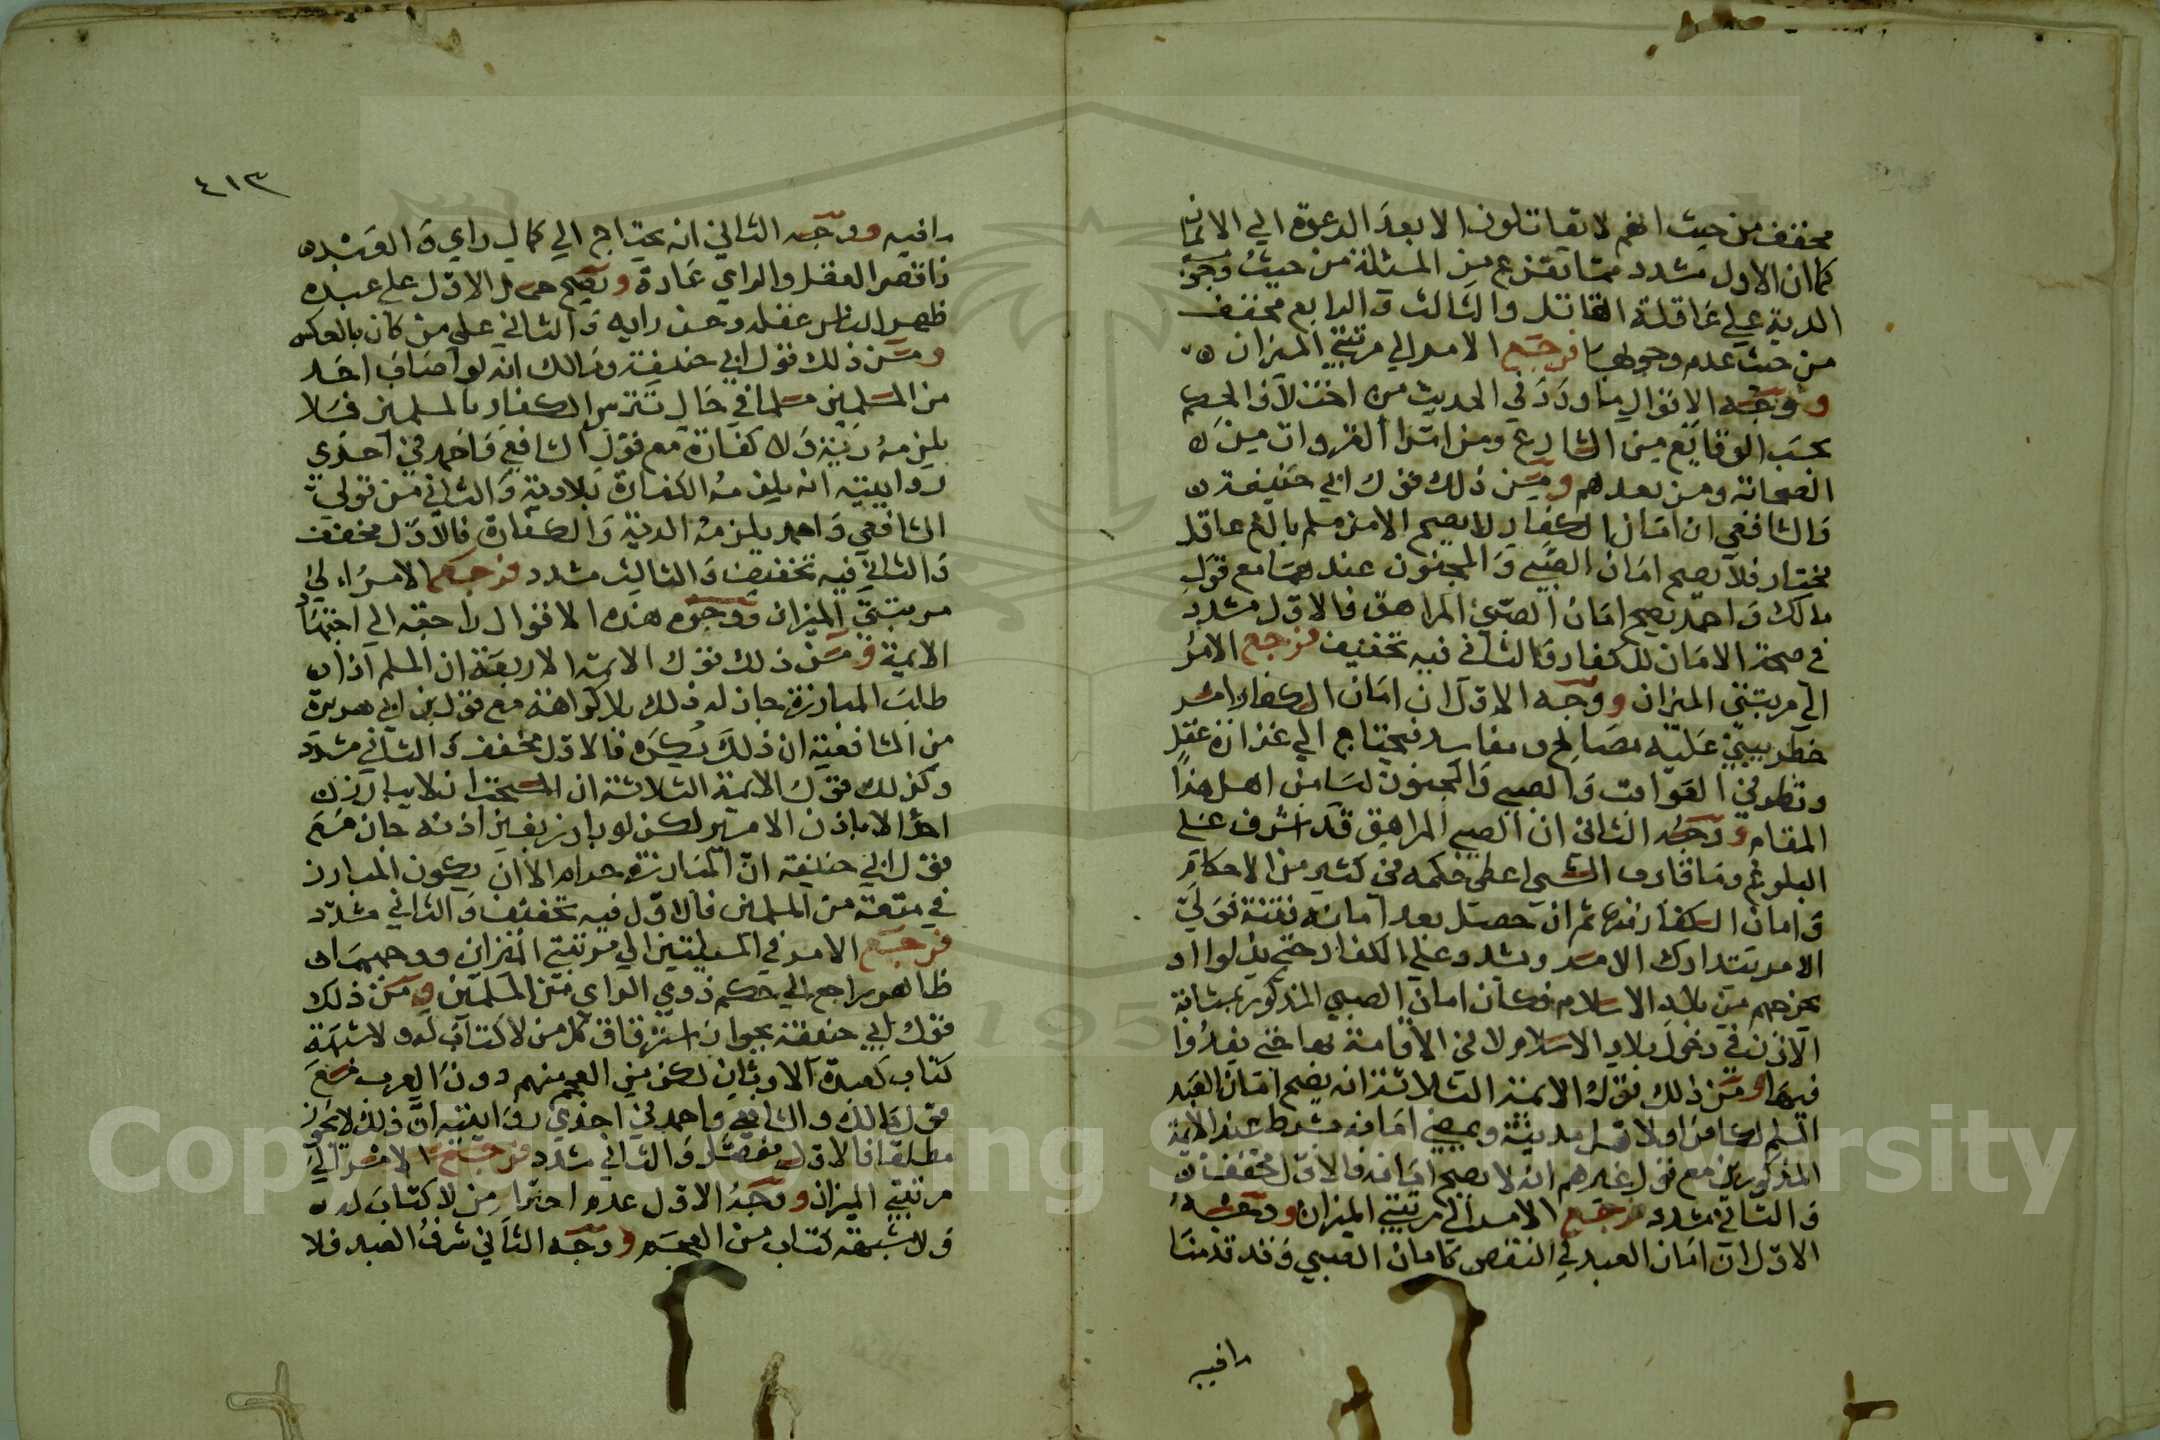 مخفف من حيث انهم لا يقاتلون الا بعد الدعوة الي الايمان
كما ان الاول مشدد مما تفرع من المسئلة من حيث وجوب
الدية علي عاقلة القاتل والثالث والرابع مخفف
من حيث عدم وجوبها فرجع الامر الي مرتبتي الميزان
ووجه الاقوال ما ورد في الحديث من اختلاف الحكم
بحسب الوقايع من الشارع ومن امرا الغزوات من
الصحابة ومن بعدهم ومن ذلك قول ابي حنيفة
والشافعي ان امان الكفار لا يصح الا من مسلم بالغ عاقل
مختار فلا يصح امان الصبي والمجنون عندهما مع قول
مالك واحمد يصح امان الصبي المراهق فالاول مشدد
في صحة الامان للكفار والثاني فيه تخفيف فرجع الامر
الي مرتبتي الميزان ووجه الاول ان امان الكفار امر
خطر يبتني عليه مصالح ومفاسد فيحتاج الي غزارة عقل
ونظر في العواقب والصبي والمجنون ليسا من اهل هذا
المقام ووجه الثاني ان الصبي المراهق قد اشرف علي
البلوغ وما قارب الشي اعطي حكمه في كثير من الاحكام
وامان الكفار منها ثم ان حصل بعد امانه فتنة فولي
الامر يتدارك الامر ويشدد علي الكفار حتي يذلوا او
يخرجهم من بلاد الاسلام فكان امان الصبي المذكور بمثابة
الاذن في دخول بلاد الاسلام لا في الاقامة بها حتي يفسدوا
فيها ومن ذلك قول الايمة الثلاثة انه يصح امان العبد
المسلم لكافر او لاهل مدينة ويمضي امانه بشرط عند الايمة
المذكورين مع قول غيرهم انه لا يصح امانه فالاول مخفف
والثاني مشدد فرجع الامر الي مرتبتي الميزان ووجه
الاول ان امان العبد في النقص كامان الصبي وقد قدمنا
ما فيه
٤١٣
ما فيه ووجه الثاني انه يحتاج الي كمال راي والعبد
ناقص العقل والراي عادة ويصح حمل الاول علي عبد
ظهر للناس عقله وحسن رايه والثاني علي من كان بالعكس
ومن ذلك قول ابي حنيفة ومالك انه لو اصاب احد
من المسلمين مسلما في حال تترس الكفار بالمسلمين فلا
يلزمه دية ولا كفارة مع قول الشافعي واحمد في احدي
روايتيه انه يلزمه الكفارة بلا دية والثاني من قولي
الشافعي واحمد يلزمه الدية والكفارة فالاول مخفف
والثاني فيه تخفيف والثالث مشدد فرجع الامر الي
مرتبتي الميزان ووجوه هذه الاقوال راجعة الي اجتهاد
الايمة ومن ذلك قول الايمة الاربعة ان المسلم اذا
طلب المبارزة جاز له ذلك بلا كراهة مع قول بن ابي هريرة
من الشافعية ان ذلك يكره فالاول مخفف والثاني مشدد
وكذلك قول الايمة الثلاثة ان المستحب ان لا يبارز
احد الا باذن الامير لكن لو بارز بغير اذنه جاز مع
قول ابي حنيفة ان المبارزة حرام الا ان يكون المبارز
في منعة من المسلمين فالاول فيه تخفيف والثاني مشدد
فرجع الامر في المسئلتين الي مرتبتي الميزان ووجههما
ظاهر راجع الي حكم ذوي الراي من المسلمين ومن ذلك
قول ابي حنيفة بجواز استرقاق كل من لا كتاب له ولا شبهة
كتاب كعبدة الاوثان لكن من العجم منهم دون العرب مع
قول مالك والشافعي واحمد في احدي روايتيه ان ذلك لا يجوز
مطلقا فالاول مفصل والثاني مشدد فرجع الامر الي
مرتبتي الميزان ووجه الاول عدم احترام من لا كتاب له
ولا شبهة كتاب من العجم ووجه الثاني شرف العبد فلا